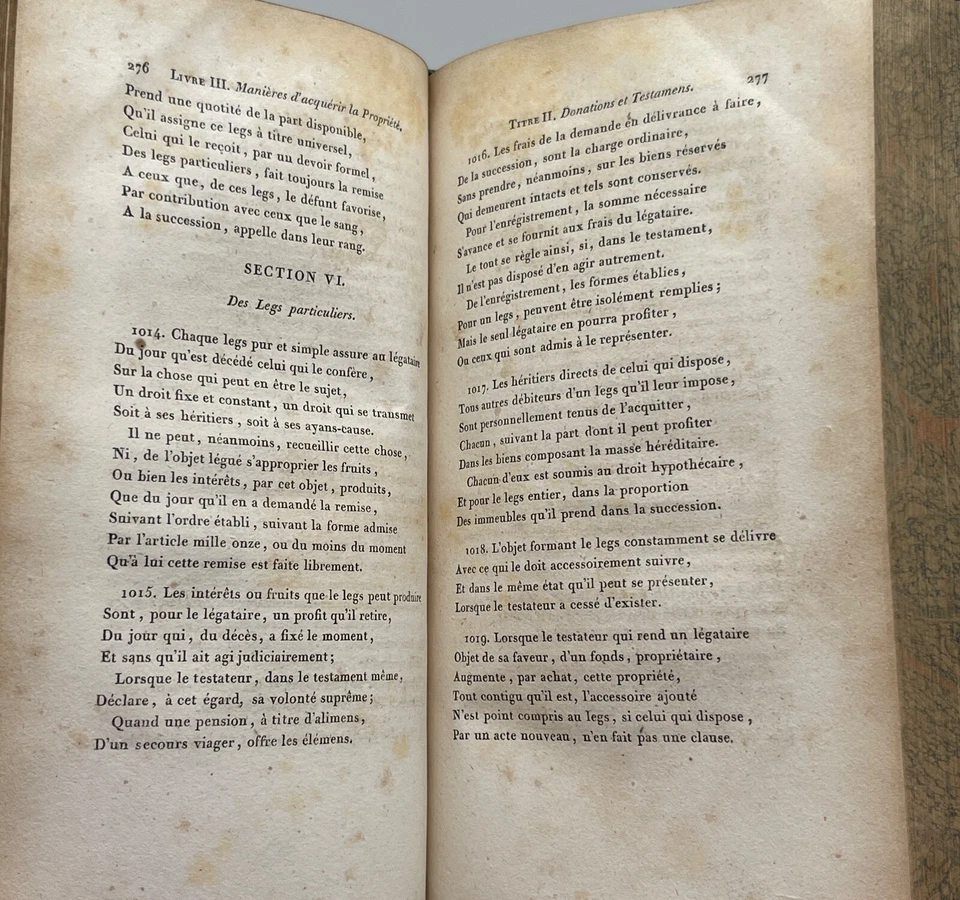 276 LIVRE III. Manières d'acquérir la Propriété.
Prend une quotité de la part disponible,
Qu'il assigne ce legs à titre universel,
Celui qui le reçoit, par un devoir formel,
Des legs particuliers, fait toujours la remise
A ceux que, de ces legs, le défunt favorise,
Par contribution avec ceux que le sang,
A la succession, appelle dans leur rang.
SECTION VI.
Des Legs particuliers.
1014. Chaque legs pur et simple assure au légataire
Du jour qu'est décédé celui qui le confère,
Sur la chose qui peut en être le sujet,
Un droit fixe et constant, un droit qui se transmet
Soit à ses héritiers, soit à ses ayans-cause.
Il ne peut, néanmoins, recueillir cette chose,
Ni, de l'objet légué s'approprier les fruits,
Ou bien les intérêts, par cet objet, produits,
Que du jour qu'il en a demandé la remise,
Suivant l'ordre établi, suivant la forme admise
Par l'article mille onze, ou du moins du moment
Qu'à lui cette remise est faite librement.
1015. Les intérêts ou fruits que le legs peut produire
Sont, pour le légataire, un profit qu'il retire,
Du jour qui, du décès, a fixé le moment,
Et sans qu'il ait agi judiciairement;
Lorsque le testateur, dans le testament même,
Déclare, à cet égard, sa volonté suprême;
Quand une pension, à titre d'alimens,
D'un secours viager, offre les élémens.
TITRE II. Donations et Testamens. 277
1016. Les frais de la demande en délivrance à faire,
De la succession, sont la charge ordinaire,
Sans prendre, néanmoins, sur les biens réservés
Qui demeurent intacts et tels sont conservés.
Pour l'enrégistrement, la somme nécessaire
S'avance et se fournit aux frais du légataire.
Le tout se règle ainsi, si, dans le testament,
Il n'est pas disposé d'en agir autrement.
De l'enrégistrement, les formes établies,
Pour un legs, peuvent être isolément remplies;
Mais le seul légataire en pourra profiter,
Ou ceux qui sont admis à le représenter.
1017. Les héritiers directs de celui qui dispose,
Tous autres débiteurs d'un legs qu'il leur impose,
Sont personnellement tenus de l'acquitter,
Chacun, suivant la part dont il peut profiter
Dans les biens composant la masse héréditaire.
Chacun d'eux est soumis au droit hypothécaire,
Et pour le legs entier, dans la proportion
Des immeubles qu'il prend dans la succession.
1018. L'objet formant le legs constamment se délivre
Avec ce qui le doit accessoirement suivre,
Et dans le même état qu'il peut se présenter,
Lorsque le testateur a cessé d'exister.
1019. Lorsque le testateur qui rend un légataire
Objet de sa faveur, d'un fonds, propriétaire,
Augmente, par achat, cette propriété,
Tout contigu qu'il est, l'accessoire ajouté
N'est point compris au legs, si celui qui dispose,
Par un acte nouveau, n'en fait pas une clause.